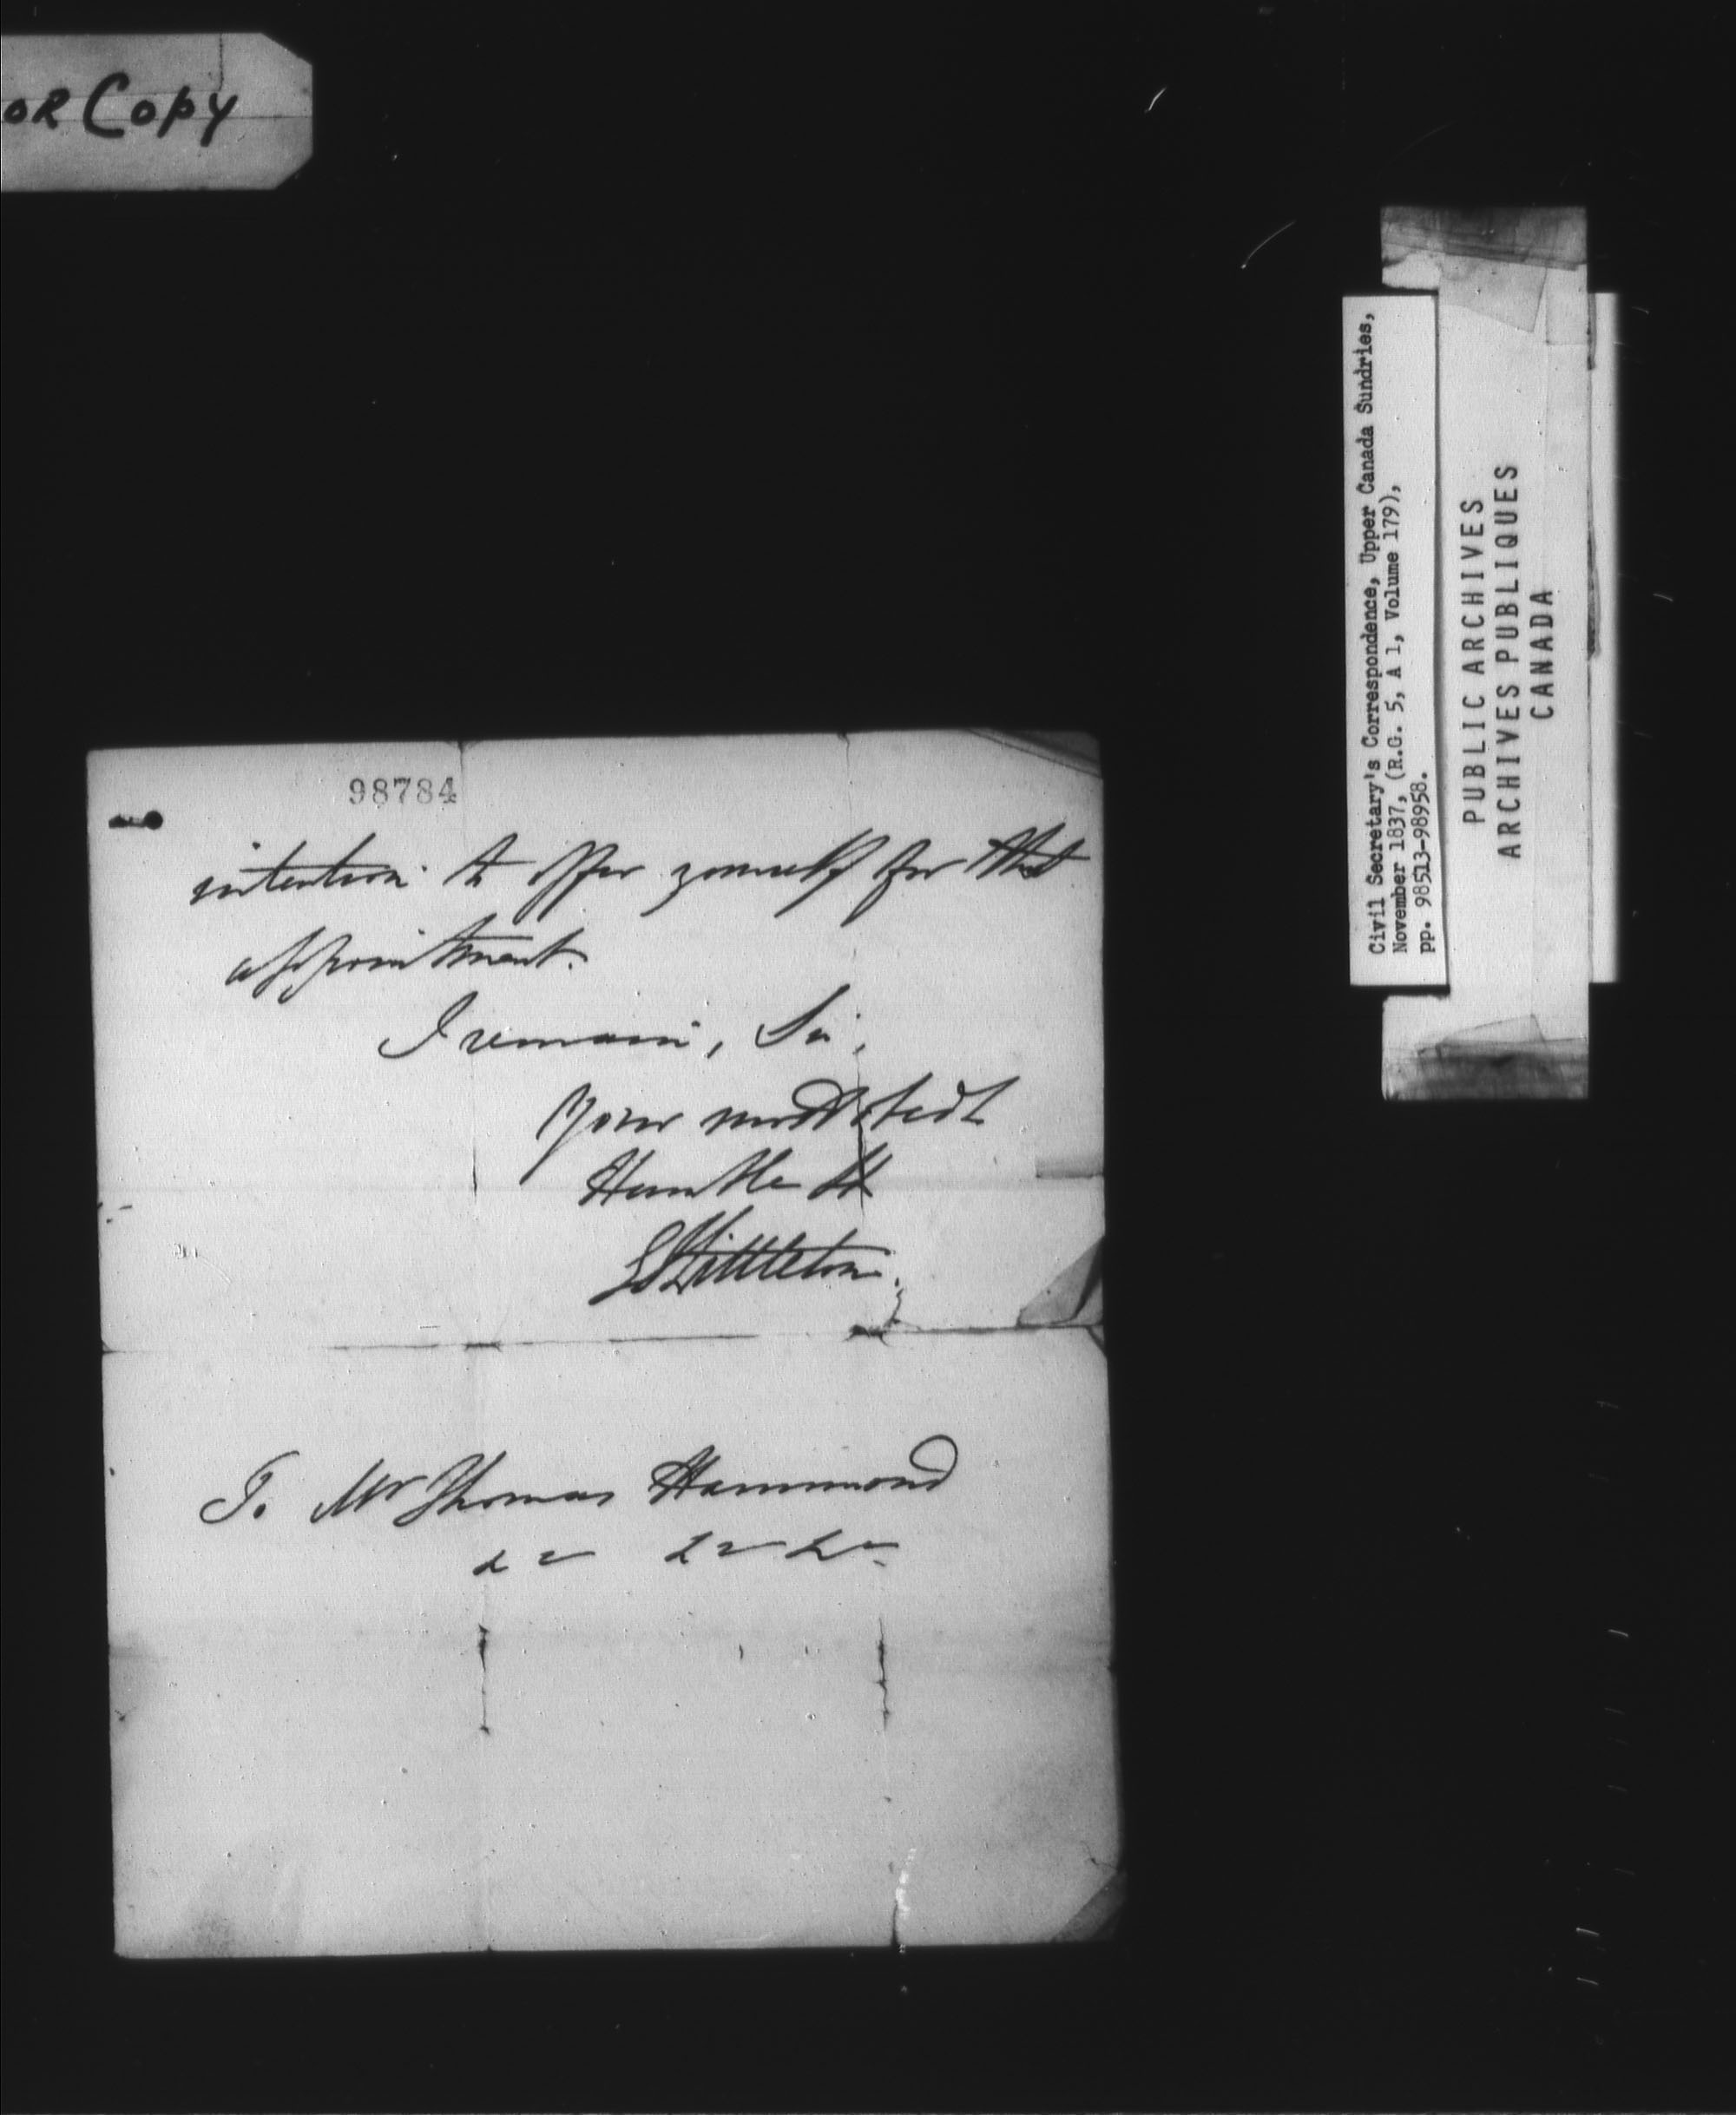 OR Copy
98784
intention to offer yourself for that
appointment.
I remain, Sir,
Your most obedt
Humble St
To Mr Thomas Hammond
Civil Secretary's Correspondence, Upper Canada Sundries,
November 1837, (R.G. 5, A 1, Volume 179),
pp. 98513-98958.
PUBLIC ARCHIVES
ARCHIVES PUBLIQUES
CANADA